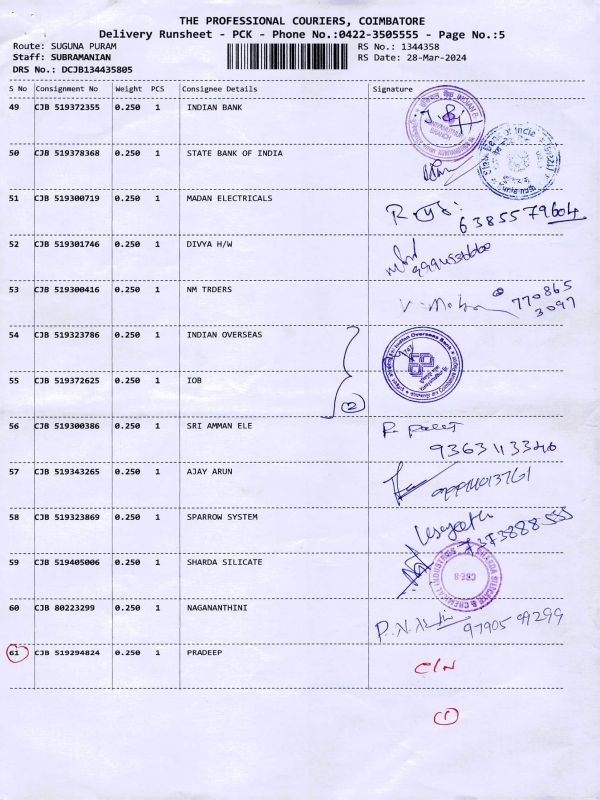 THE PROFESSIONAL COURIERS, COIMBATORE
Delivery Runsheet - PCK - Phone No.:0422-3505555 - Page No.:5
Route: SUGUNA PURAM RS No.: 1344358
Staff: SUBRAMANIAN RS Date: 28-Mar-2024
DRS No.: DCJB134435805
S No Consignment No Weight PCS Consignee Details Signature
49 CJB 519372355 0.250 1 INDIAN BANK
50 CJB 519378368 0.250 1 STATE BANK OF INDIA
51 CJB 519300719 0.250 1 MADAN ELECTRICALS
6385579604
52 CJB 519301746 0.250 1 DIVYA H/W
53 CJB 519300416 0.250 1 NM TRDERS
770865
3097
54 CJB 519323786 0.250 1 INDIAN OVERSEAS
Indian Overseas Bank
55 CJB 519372625 0.250 1 IOB
2
56 CJB 519300386 0.250 1 SRI AMMAN ELE
9363113346
57 CJB 519343265 0.250 1 AJAY ARUN
58 CJB 519323869 0.250 1 SPARROW SYSTEM
7373888555
59 CJB 519405006 0.250 1 SHARDA SILICATE
SHARDA SILICATE & CHEMICAL INDUSTRIES
CBE-8
60 CJB 80223299 0.250 1 NAGANANTHINI
61 CJB 519294824 0.250 1 PRADEEP
C/N
1